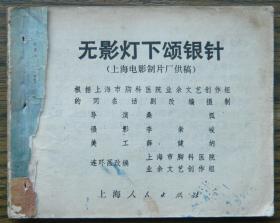 无影灯下颂银针
(上海电影制片厂供稿)
根据上海市胸科医院业余文艺创作组
的同名话剧改编摄制
导演 桑弧
摄影 李崇峻
美工 薛健纳
连环画改编 上海市胸科医院
业余文艺创作组
上海人民出版社